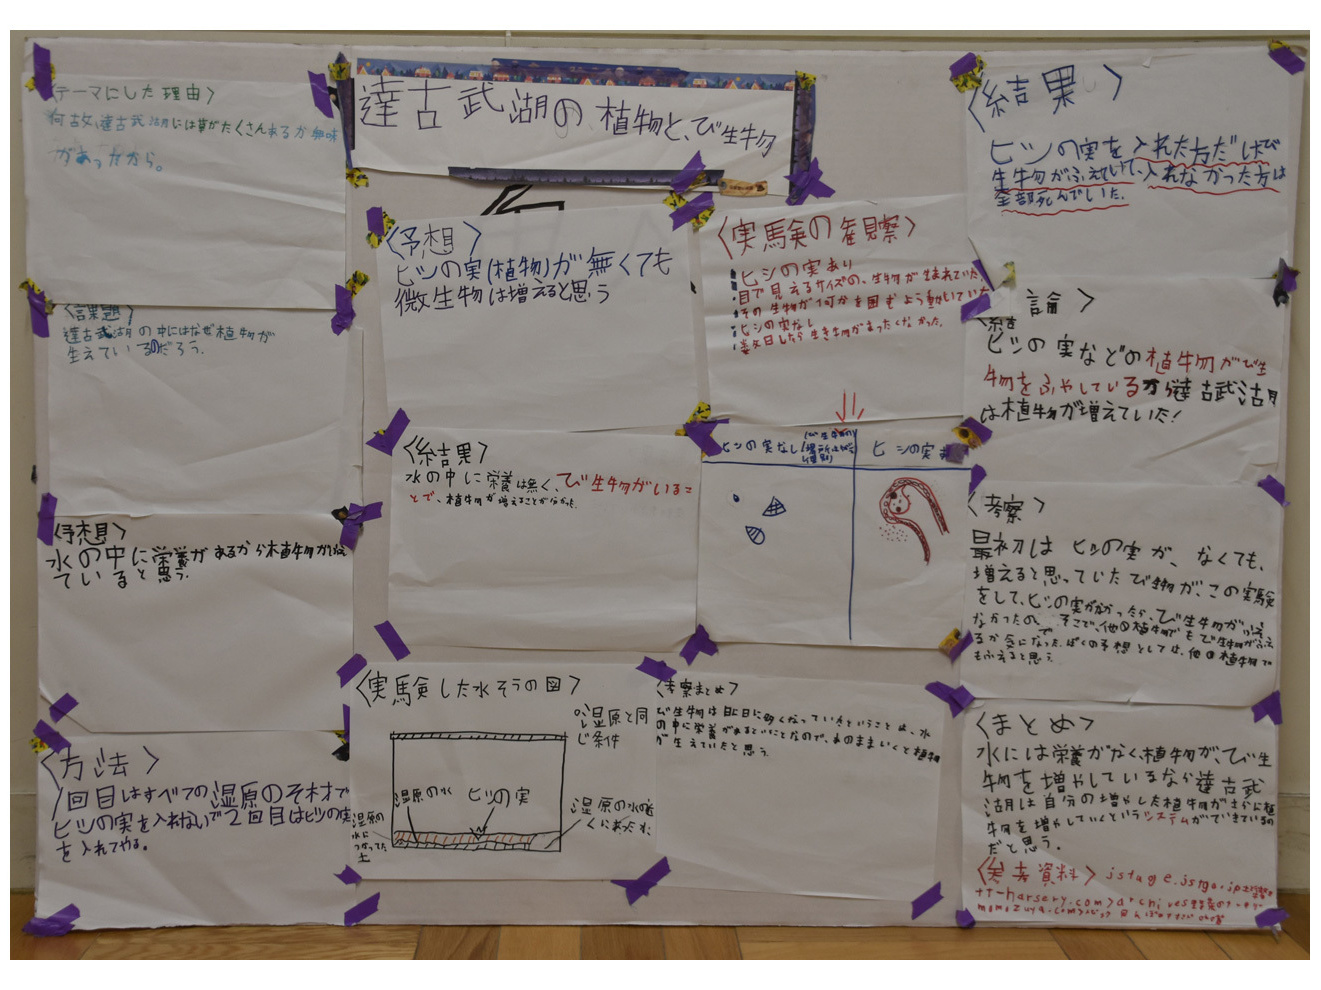 達古武湖の植物と、び生物
〈テーマにした理由〉
何故、達古武湖には草がたくさんあるか興味
があったから。
〈課題〉
達古武湖の中にはなぜ植物が
生えているのだろう。
〈予想〉
水の中に栄養があるから植物が生え
ていると思う。
〈方法〉
1回目はすべての湿原のそ材で
ヒシの実を入れないで2回目はヒシの実
を入れてやる。
〈予想〉
ヒシの実(植物)が無くても
微生物は増えると思う
〈結果〉
水の中に栄養は無く、び生物がいるこ
とで、植物が増えることが分かった。
〈実験した水そうの図〉
湿原と同
じ条件
湿原の水
ヒシの実
湿原の
水に
つかってた
土
湿原の水の
〈実験の観察〉
ヒシの実あり
目で見えるサイズの、生物が生まれていた。
その生物が何かを囲むよう動いていた
ヒシの実なし
数日したら生き物がまったくいなかった。
ヒシの実なし
ヒシの実
〈考察まとめ〉
び生物は日に日に多くなっていきということは、水
の中に栄養があるということなので、あのままいくと植物
が生えていたと思う。
〈結果〉
ヒシの実を入れた方だけび
生物がふえていて、入れなかった方は
全部死んでいた。
結論〉
ヒシの実などの植物がび生
物をふやしているから達古武湖
は植物が増えていた!
〈考察〉
最初は ヒシの実が、なくても、
増えると思っていたび生物が、この実験
をして、ヒシの実がなかったら、び生物がふえ
なかったので、そこで、他の植物でもび生物がふえ
るか気になった。ぼくの予想としては、他の植物で
もふえると思う。
〈まとめ〉
水には栄養がなく、植物が、び生
物を増やしているなら達古武
湖は自分の増やした植物がさらに植
物を増やしていくというシステムができているの
だと思う。
〈参考資料〉